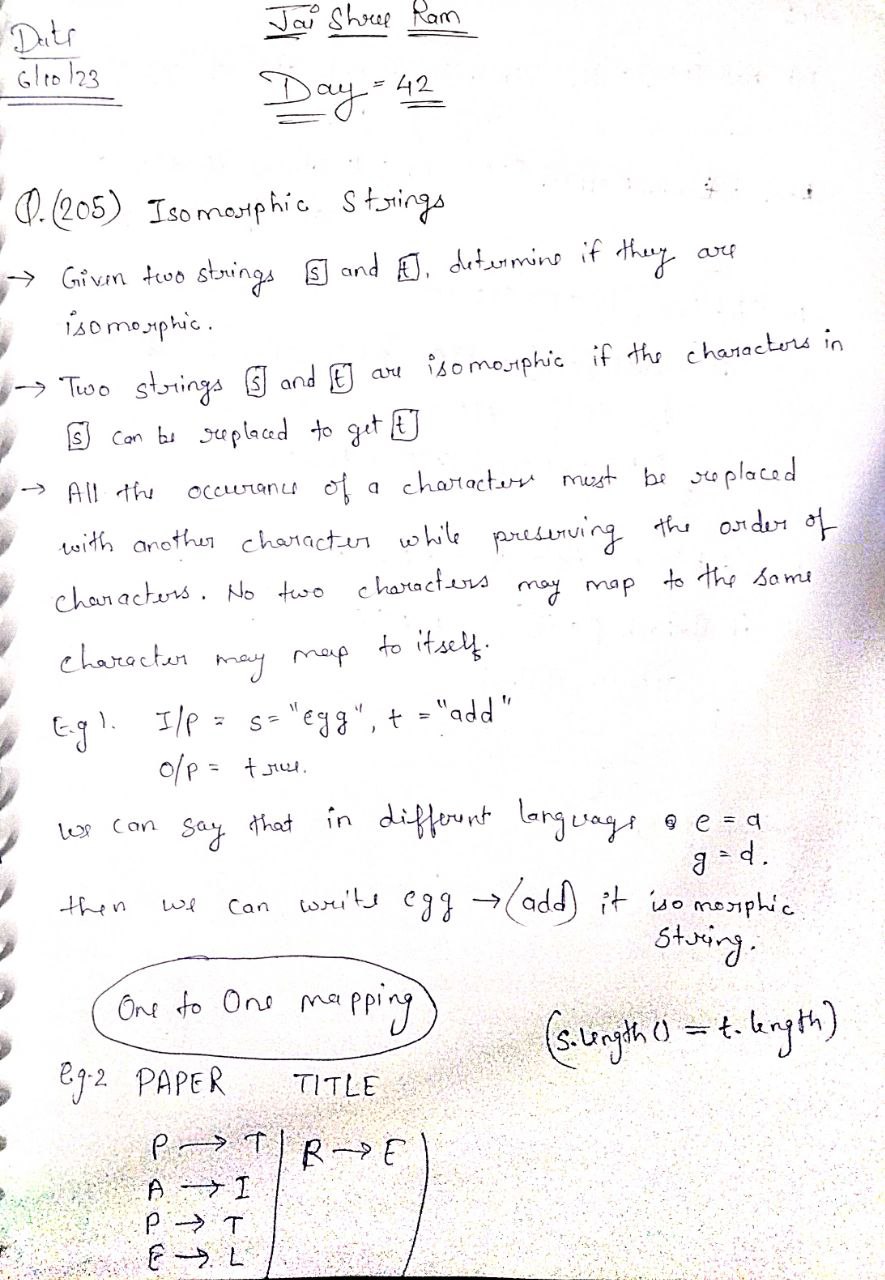 Jai Shree Ram
Date
6/10/23
Day = 42
Q. (205) Isomorphic Strings
→ Given two strings s and t, determine if they are
isomorphic.
→ Two strings s and t are isomorphic if the characters in
s can be replaced to get t
→ All the occurance of a character must be replaced
with another character while preserving the order of
characters. No two characters may map to the same
character may map to itself.
E.g 1. I/P = s= "egg", t = "add"
O/P = true.
we can say that in different language e = a
g = d.
then we can write egg → (add) it isomorphic
String.
One to One mapping
(s.length() = t.length)
eg-2 PAPER TITLE
P → T | R → E
A → I
P → T
E → L